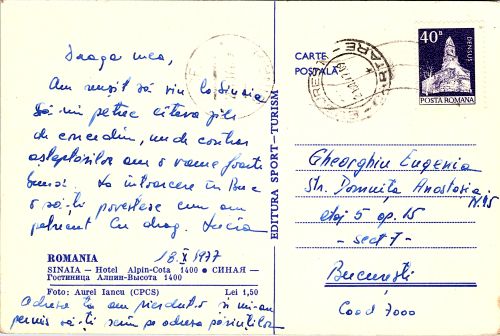 Draga mea,
Am reușit să vin la Sinaia
să-mi petrec câteva zile
de concediu, unde contrar
așteptărilor am o vreme foarte
bună. La întoarcere în Buc
o să-ți povestesc cum am
petrecut. Cu drag, Lucia
18.X 1977
ROMANIA
SINAIA — Hotel Alpin-Cota 1400 ● СИНАЯ —
Гостиница Алпин-Высота 1400
Foto: Aurel Iancu (CPCS) Lei 1,50
Adresa ta am pierdut-o și mi-am
permis să-ți scriu pe adresa părinților
EDITURA SPORT-TURISM
CARTE
POȘTALĂ
40 B
DENSUS
POSTA ROMANA
Gheorghiu Eugenia
Str. Domnița Anastasia
N. 15
etaj 5 ap. 15
- sect 7 -
București
Cood 7000